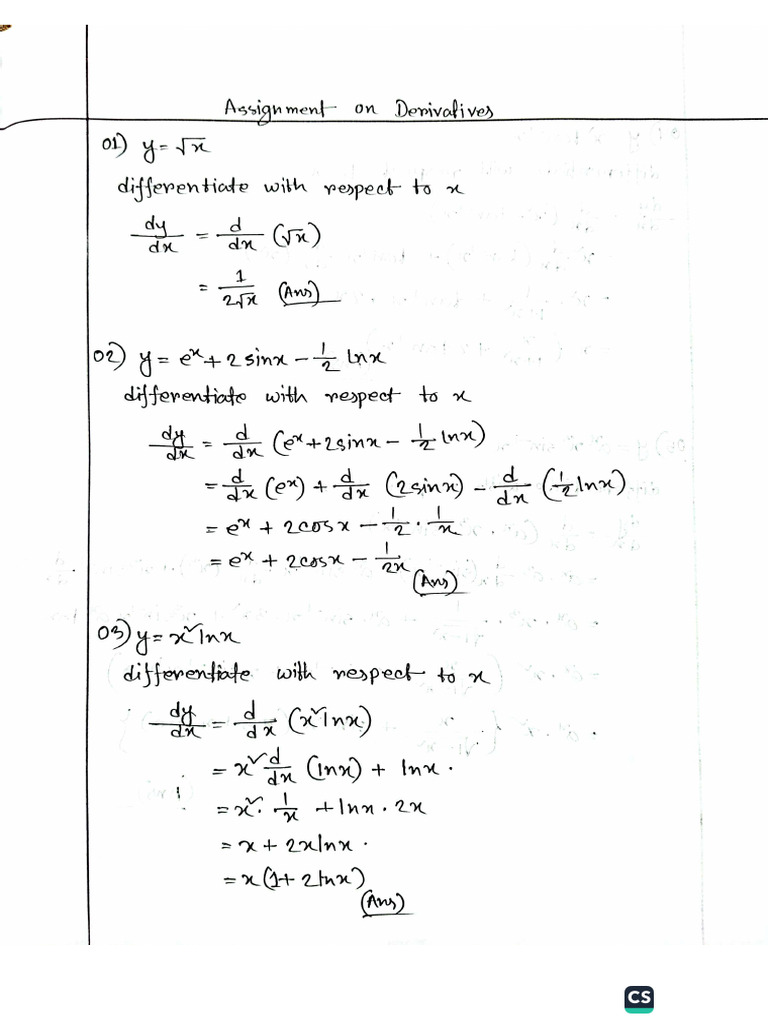 Assignment on Derivatives
01) y = √x
differentiate with respect to x
dy/dx = d/dx (√x)
= 1/2√x (Ans)
02) y = eˣ + 2 sinx - 1/2 lnx
differentiate with respect to x
dy/dx = d/dx (eˣ + 2sinx - 1/2 lnx)
= d/dx (eˣ) + d/dx (2sinx) - d/dx (1/2 lnx)
= eˣ + 2cosx - 1/2 · 1/x
= eˣ + 2cosx - 1/2x
(Ans)
03) y = x² lnx
differentiate with respect to x
dy/dx = d/dx (x² lnx)
= x² d/dx (lnx) + lnx ·
= x² · 1/x + lnx · 2x
= x + 2xlnx ·
= x (1 + 2lnx)
(Ans)
CS